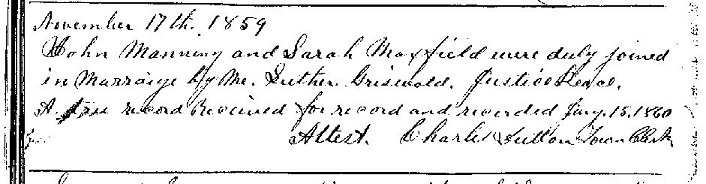 November 17th. 1859
John Manning and Sarah Maxfield were duly joined
in Marraige by Me. Luther Griswald. Justice Peace.
A true record Received for record and recorded Jany. 15, 1860
Attest. Charles Sutton Town Clerk